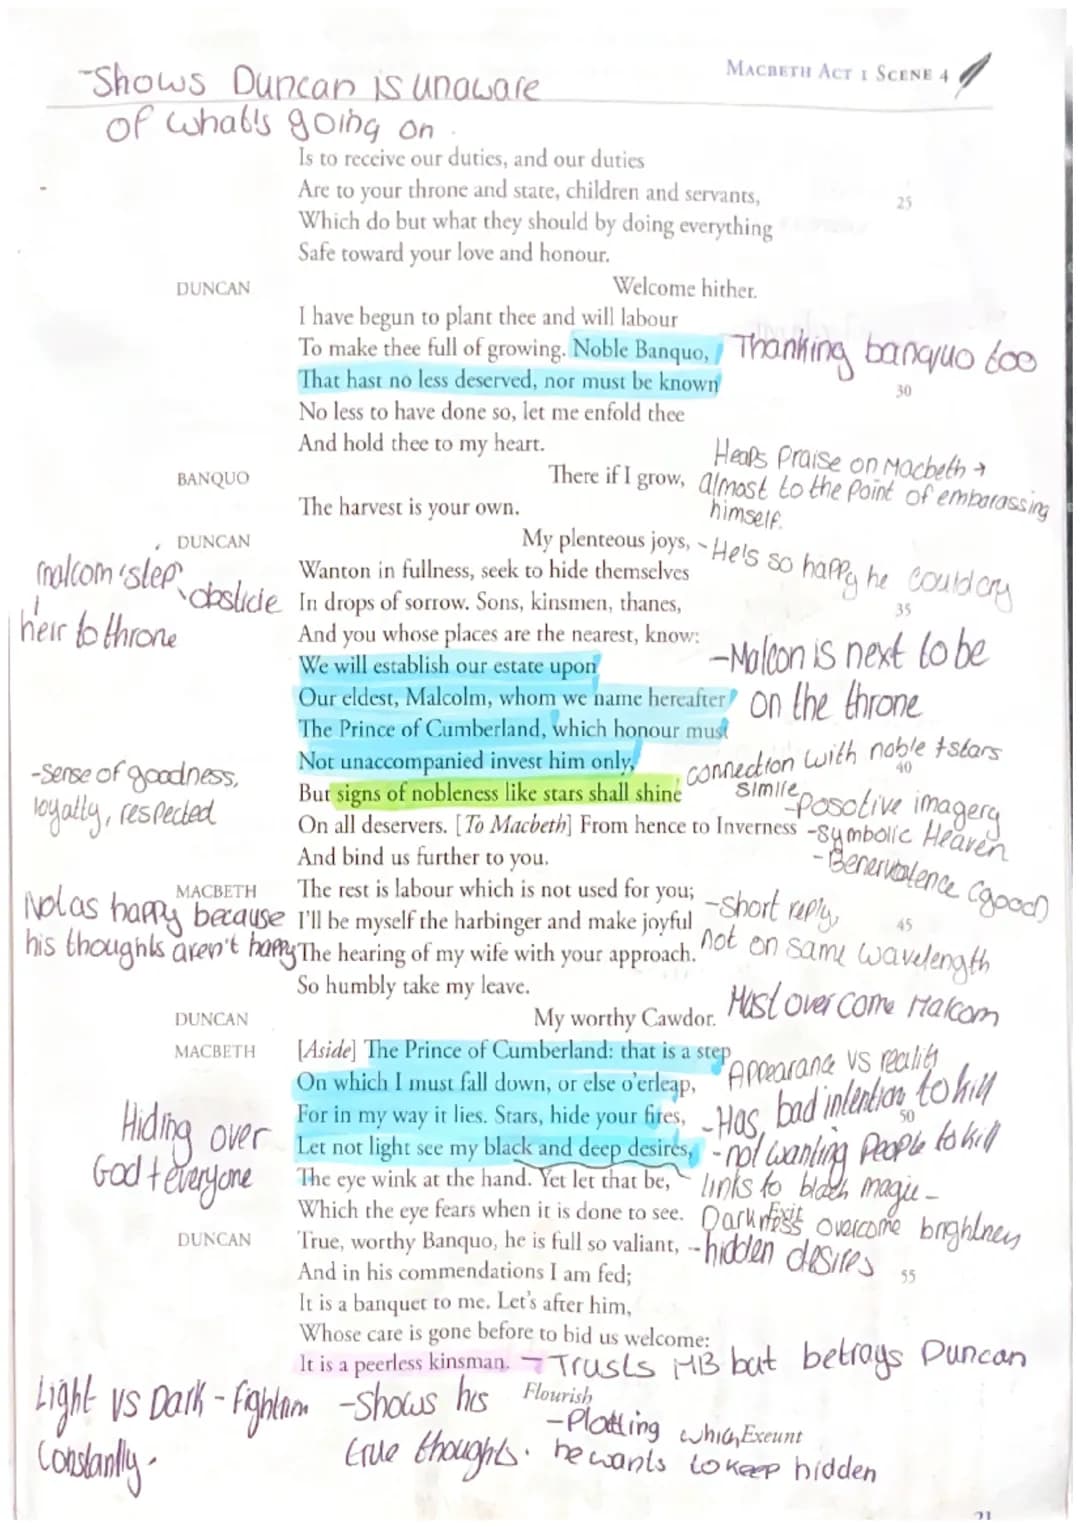 MACBETH ACT 1 SCENE 4
-Shows Duncan is unaware
of what's going on
Is to receive our duties, and our duties
Are to your throne and state, children and servants,
25
Which do but what they should by doing everything
Safe toward your love and honour.
DUNCAN Welcome hither.
I have begun to plant thee and will labour
To make thee full of growing. Noble Banquo,
Thanking banquo too
That hast no less deserved, nor must be known
30
No less to have done so, let me enfold thee
And hold thee to my heart.
BANQUO There if I grow,
The harvest is your own.
Heaps Praise on Macbeth →
almost to the point of embarassing
himself.
DUNCAN My plenteous joys,
-He's so happy he could cry
Wanton in fullness, seek to hide themselves
In drops of sorrow. Sons, kinsmen, thanes,
35
malcom 'step'
obslicle
heir to throne
And you whose places are the nearest, know:
We will establish our estate upon
Our eldest, Malcolm, whom we name hereafter
-Malcon is next to be
on the throne
The Prince of Cumberland, which honour must
Not unaccompanied invest him only,
40
But signs of nobleness like stars shall shine
connection with noble + stars
simile
-posotive imagery
-Symbolic Heaven
-Benervolence (good)
-Sense of goodness,
loyalty, respected
On all deservers. [To Macbeth] From hence to Inverness
And bind us further to you.
MACBETH The rest is labour which is not used for you;
I'll be myself the harbinger and make joyful
45
The hearing of my wife with your approach.
So humbly take my leave.
Not as happy because
his thoughts aren't happy
-Short reply,
not on same wavelength
DUNCAN My worthy Cawdor.
Must over come Malcom
MACBETH [Aside] The Prince of Cumberland: that is a step
On which I must fall down, or else o'erleap,
For in my way it lies. Stars, hide your fires,
50
Let not light see my black and deep desires,
The eye wink at the hand. Yet let that be,
Which the eye fears when it is done to see. Exit
Appearance VS reality
-Has bad intention to kill
-not wanting People to kill
links to black magic -
Darkness overcome brightness
--hidden desires
Hiding over
God + everyone
DUNCAN True, worthy Banquo, he is full so valiant,
And in his commendations I am fed;
55
It is a banquet to me. Let's after him,
Whose care is gone before to bid us welcome:
It is a peerless kinsman.
-Trusts MB but betrays Duncan
Flourish
Exeunt
Light VS Dark - Fightinn
Constantly.
-Shows his
true thoughts.
-Plotting which
he wants to keep hidden
21